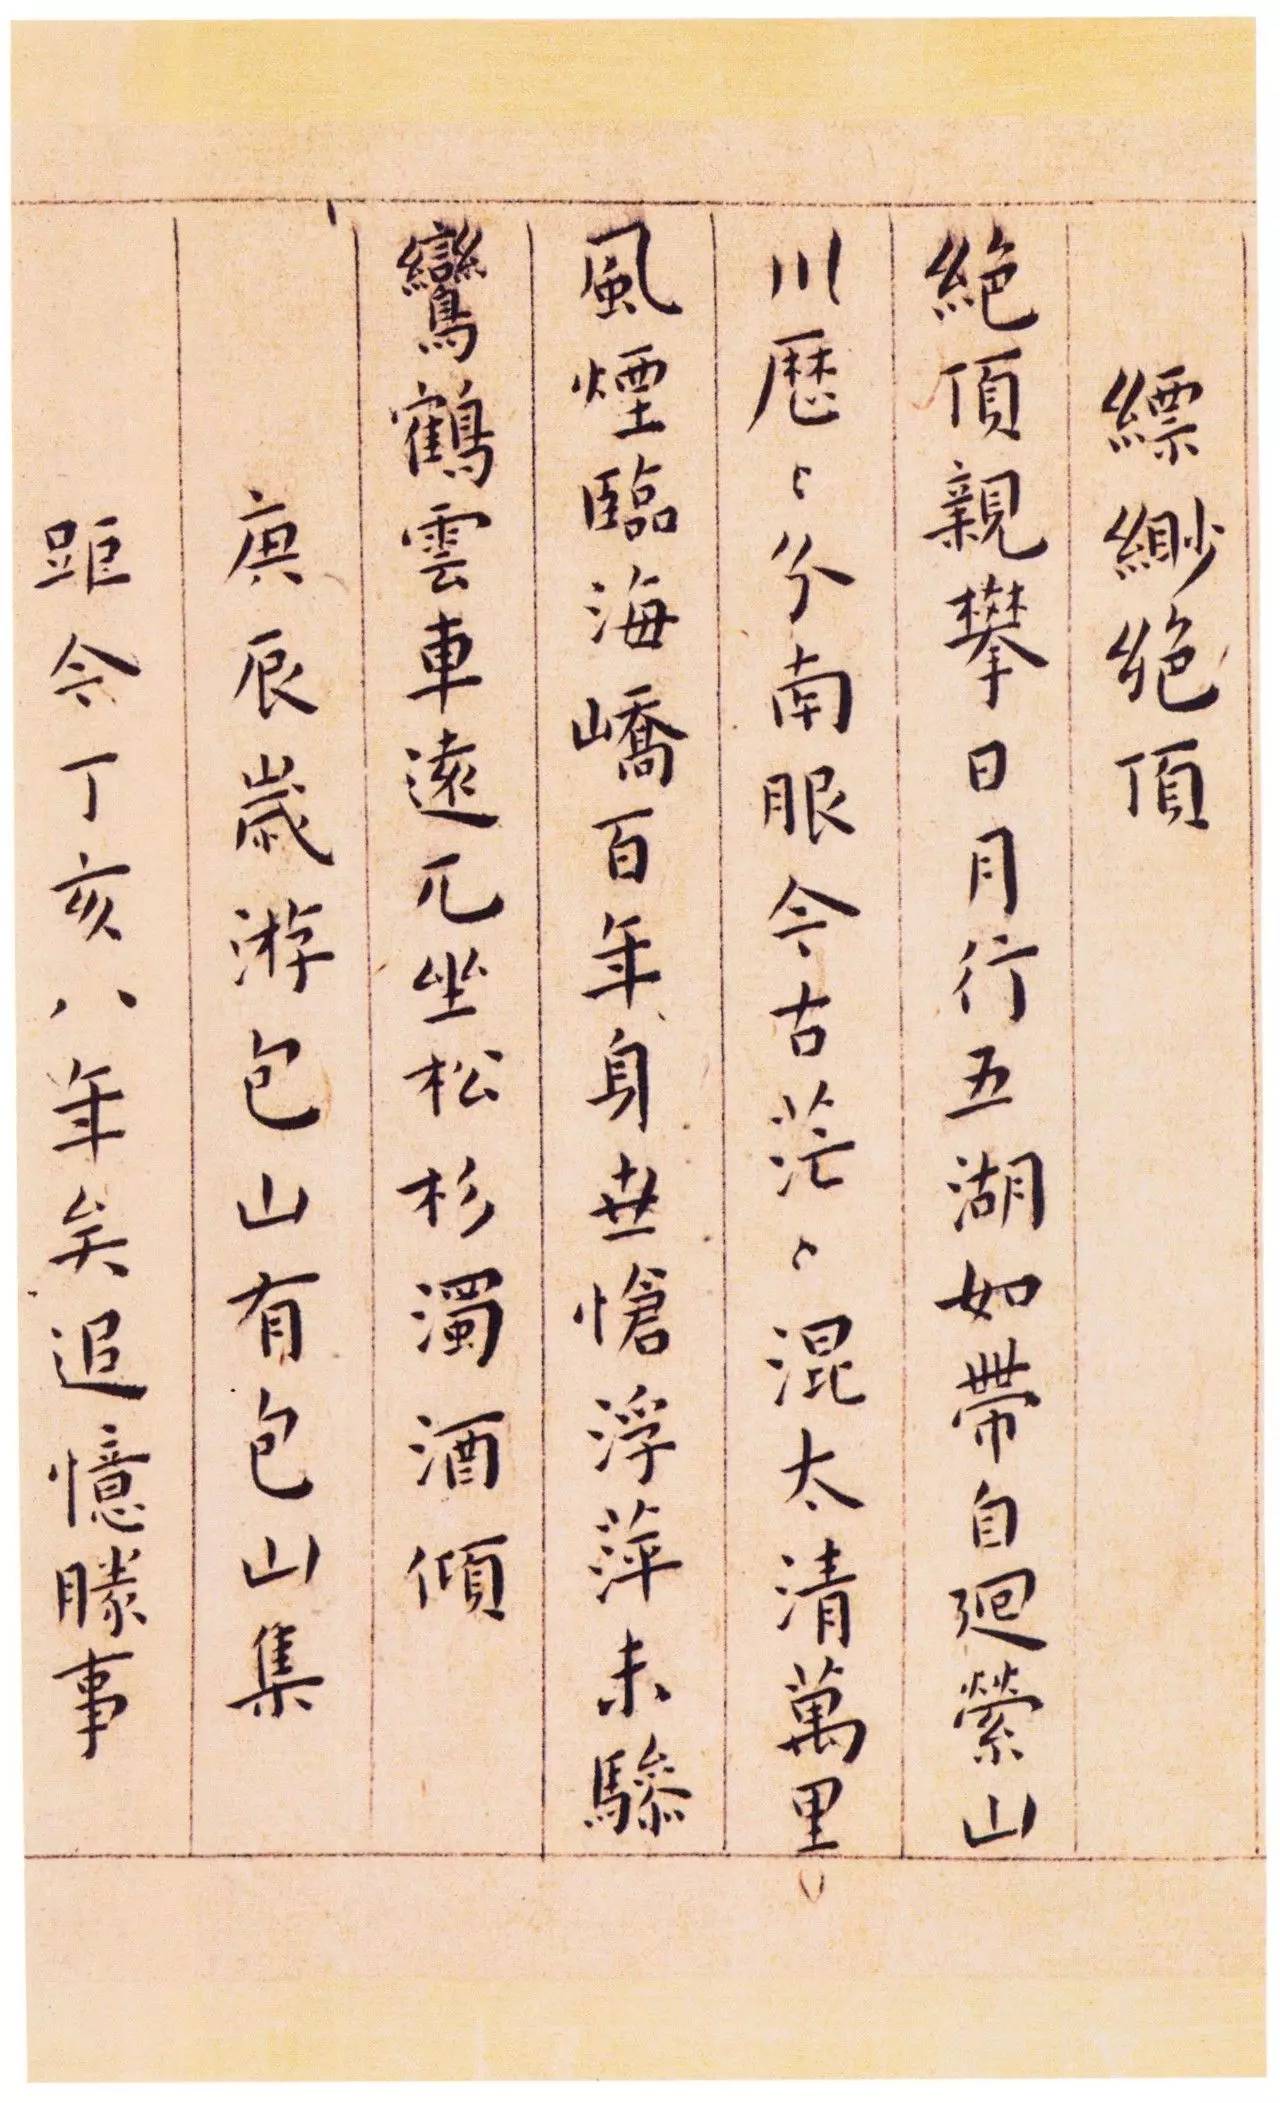 縹緲絶頂
絶頂親攀日月行五湖如帶自迴縈山
川歷〻分南眼今古茫〻混太清萬里
風煙臨海嶠百年身世愴浮萍未驂
鸞鶴雲車遠兀坐松杉濁酒傾
庚辰歲游包山有包山集
距今丁亥八年矣追憶勝事